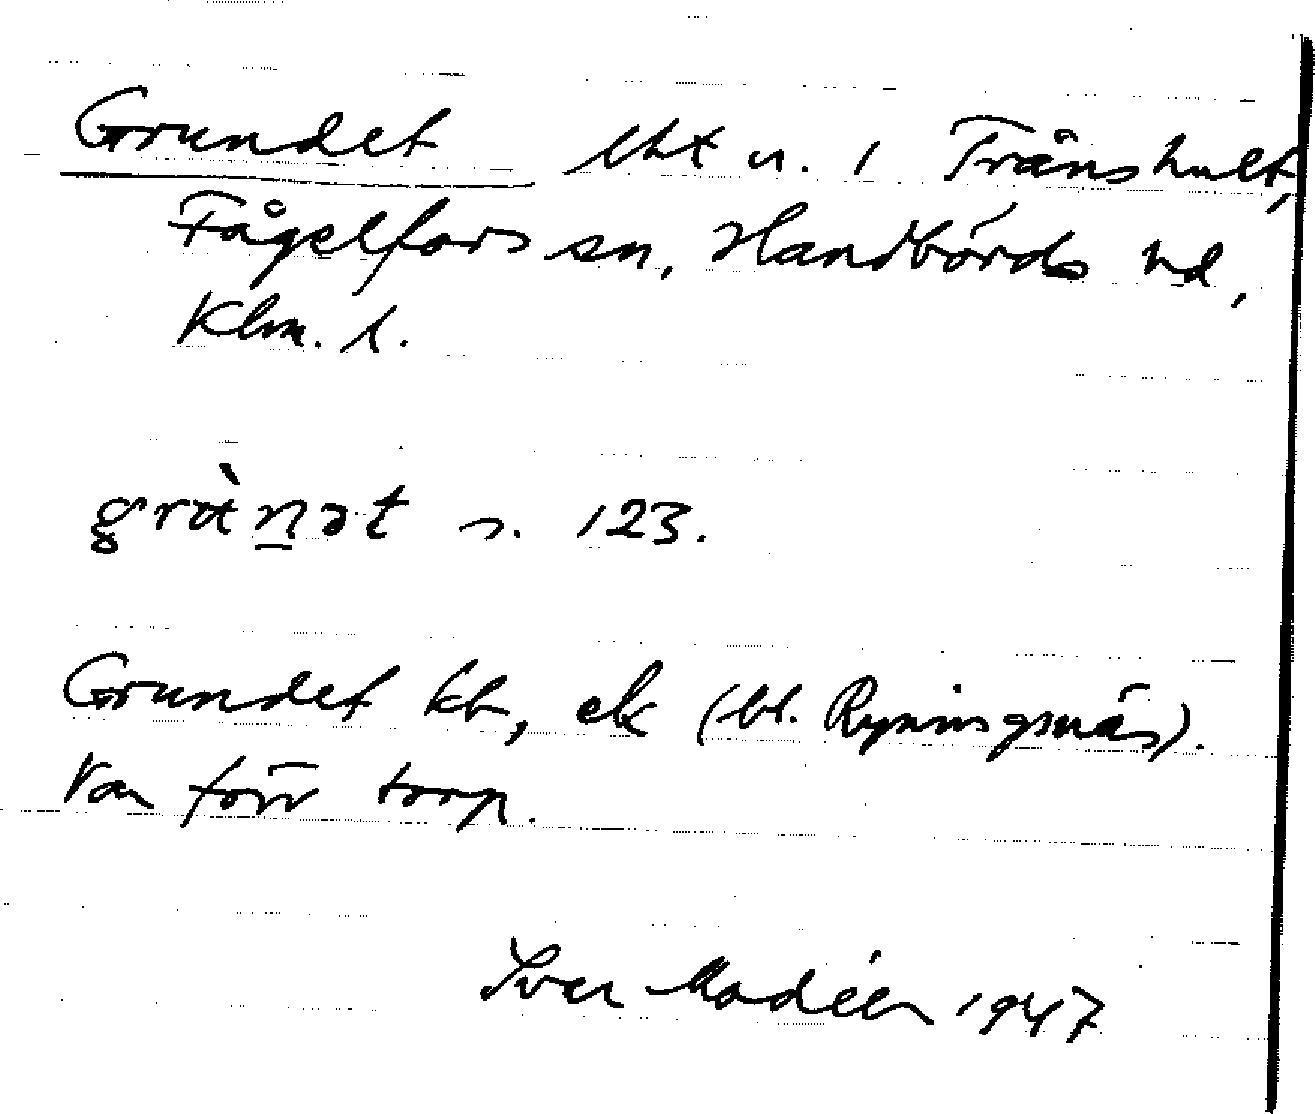 Grundet lht u. 1 Trånshult,
Fågelfors sn, Handbörds hd,
Klm. l.
grùn̲ət s. 123.
Grundet kt, ek (bl. Ryningsnäs).
Var förr torp.
Iver Modéer 1947